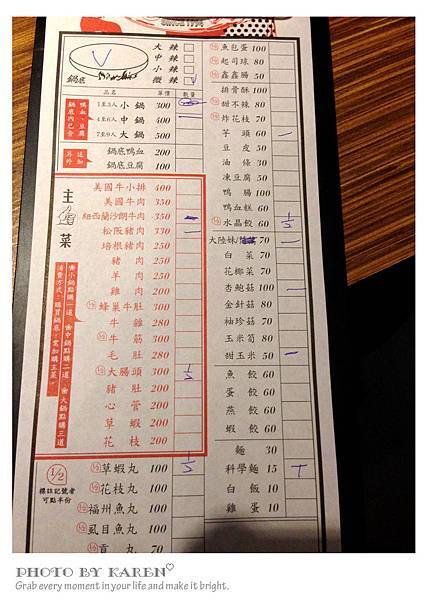 SINCE 1994
V
鍋底
大辣
中辣
小辣
微辣 V
品名 單價 數量
鍋底內已含
鴨血、豆腐
1至3人 小鍋 300
4至6人 中鍋 400
7至9人 大鍋 500
另外追加
鍋底鴨血 200
鍋底豆腐 100
主菜
美國牛小排 400
美國牛肉 350
紐西蘭沙朗牛肉 350
松阪豬肉 330
培根豬肉 250
豬肉 250
羊肉 250
雞肉 200
1/2 蜂巢牛肚 300
牛雜 280
1/2 牛筋 300
毛肚 280
1/2 大腸頭 300 1/2
豬肚 200
心管 200
草蝦 200
花枝 200
消費方式:購買鍋底,需加購主菜。
小鍋點購一道、中鍋點購二道、大鍋點購三道
1/2
標註記號者
可點半份
1/2 草蝦丸 100 1/2
1/2 花枝丸 100
1/2 福州魚丸 100
1/2 虱目魚丸 100
貢丸 70
1/2 魚包蛋 100
1/2 起司球 80
1/2 鑫鑫腸 50
排骨酥 100
1/2 甜不辣 80
1/2 炸花枝 70
芋頭 60
豆皮 50
油條 30
凍豆腐 50
鴨腸 100
鴨血糕 60
1/2 水晶餃 60 1/2
大陸妹 70
白菜 70
花椰菜 70
杏鮑菇 100
金針菇 80
袖珍菇 70
玉米筍 80
甜玉米 50
魚餃 60
蛋餃 60
燕餃 60
蝦餃 60
麵 30
科學麵 15 T
白飯 10
雞蛋 10
PHOTO BY KAREN♡
Grab every moment in your life and make it bright.